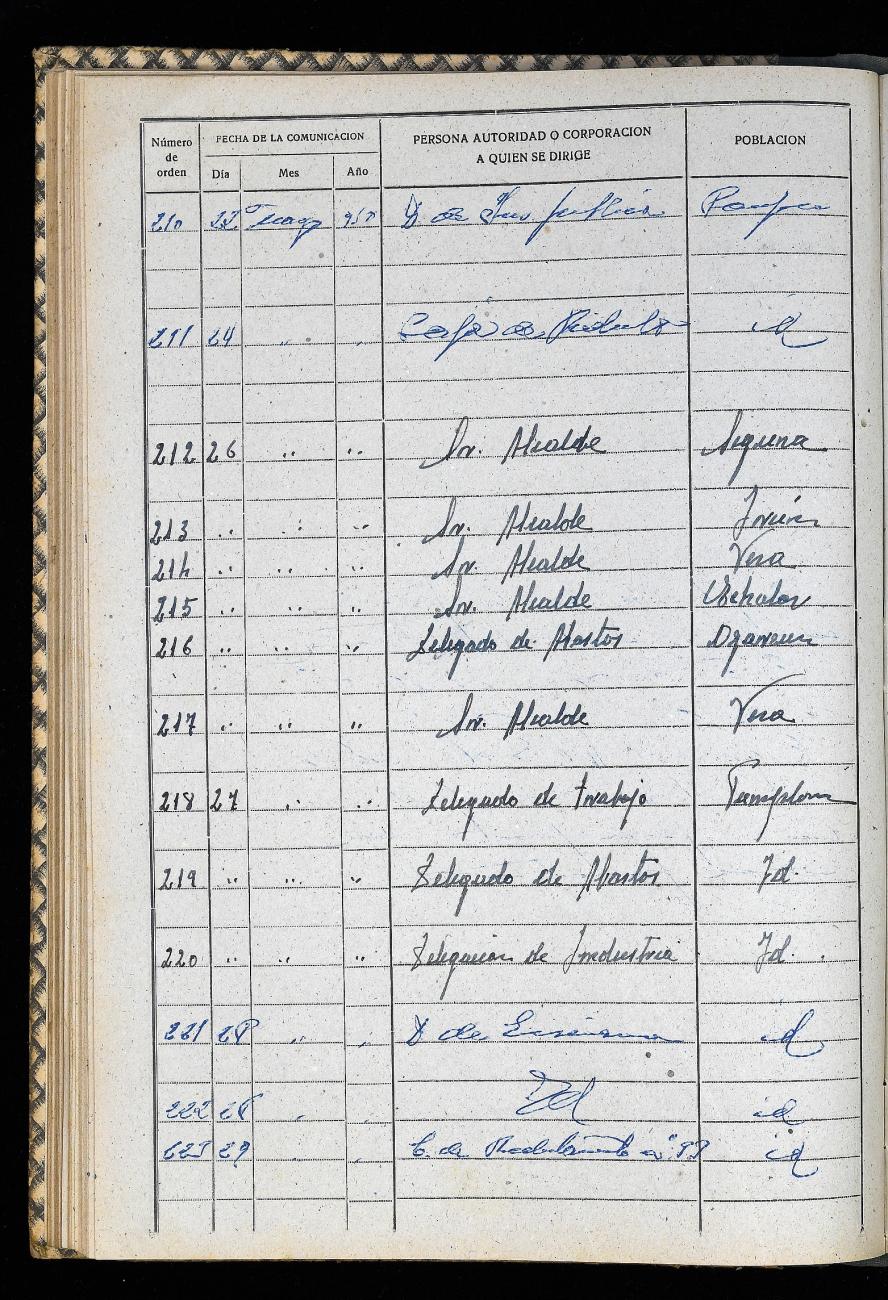 Número de orden FECHA DE LA COMUNICACION PERSONA AUTORIDAD O CORPORACION A QUIEN SE DIRIGE POBLACION
Día Mes Año
210 D de
211 24 " " Caja de id
212 26 " " Sr. Alcalde
213 " " " Sr. Alcalde
214 " " " Sr. Alcalde Vera
215 " " " Sr. Alcalde Echalar
216 " " " Delegado de Abastos
217 " " " Sr. Alcalde Vera
218 27 " " Delegado de Trabajo Pamplona
219 " " " Delegado de Abastos Id.
220 " " " Delegación de Industria Id.
221 28 " " D de id
222 28 " " Id id
223 29 " " C. de id